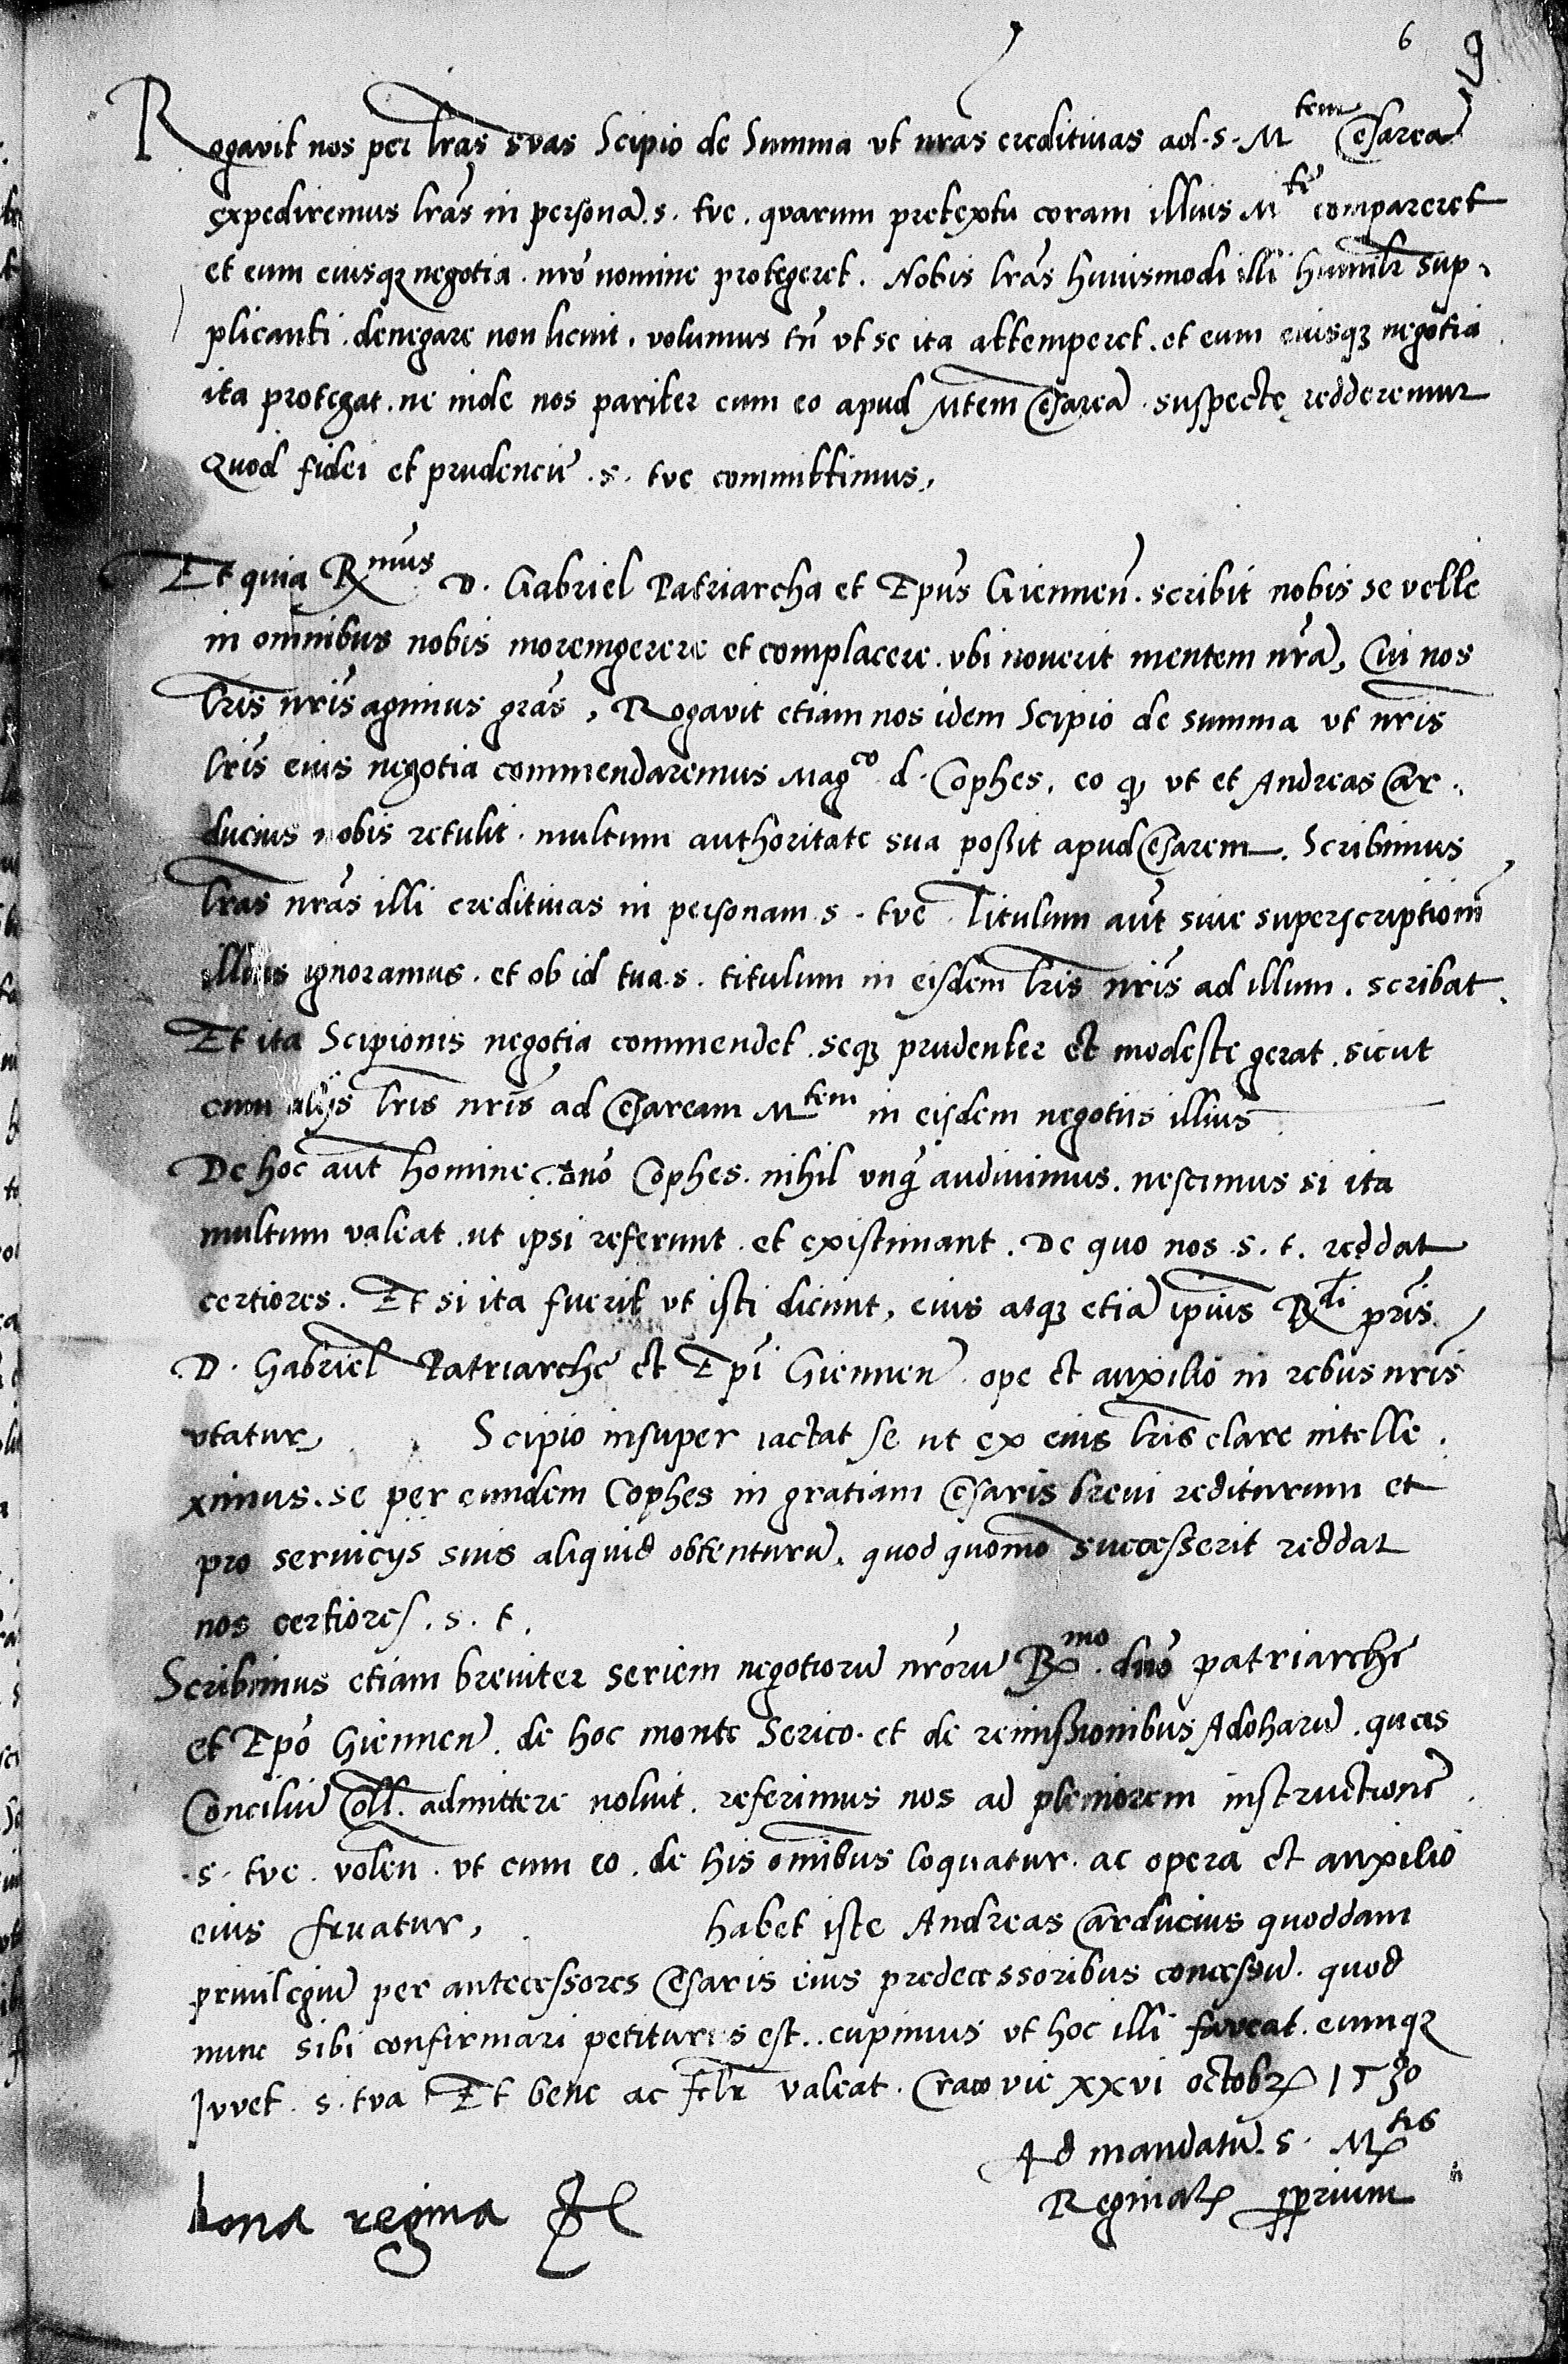 6 9
Rogavit nos per lras suas Scipio de Summa ut nras creditivas ad .s. Mtem Cesareã
expediremus lras in personã .s. tue. quarum pretextu coram illius Mte compareret
et eum eiusq; negotia. nro nomine protegeret. Nobis lras huiusmodi illi humilr sup-
plicanti. denegare non licuit. volumus tñ ut se ita attemperet. et eum eiusq; negotia
ita protegat. ne inde nos pariter cum eo apud Mtem Cesareã. suspecte redderemur
Quod fidei et prudencie .s. tue committimus.
Et quia Rmus D. Gabriel Patriarcha et Epus Giennen̄. scribit nobis se velle
in omnibus nobis moremgerere et complacere. ubi noverit mentem nrã, Cui nos
lris nris agimus gras, Rogavit etiam nos idem Scipio de Summa ut nris
lris eius negotia commendaremus Magco d. Cophes. eo q, ut et Andreas Car-
ducius nobis retulit. multum authoritate sua possit apud Cesarem. Scribimus
lras nras illi creditivas in personam .s. tue Titulum aut sive superscriptionẽ
illius ignoramus. et ob id tua .s. titulum in eisdem lris nris ad illum. scribat.
Et ita Scipionis negotia commendet. seq; prudenter et modeste gerat. sicut
cum alijs lris nris ad Cesaream Mtem in eisdem negotiis illius
De hoc aut homine .s. dno Cophes. nihil unq̃ audivimus. nescimus si ita
multum valeat. ut ipsi referunt. et existimant. De quo nos .s. t. reddat
certiores. Et si ita fuerit ut isti dicunt, eius atq; etiã ipsius Rdi pris.
D. Gabriel Patriarche et Epi Giennen̄ ope et auxilio in rebus nris
utatur, Scipio insuper iactat se ut ex eius lris clare intelle-
ximus. se per eundem Cophes in gratiam Cesaris brevi rediturum et
pro servicijs suis aliquid obtenturũ. quod quomo successerit reddat
nos certiores .s. t.
Scribimus etiam breviter seriem negotiorũ nrorũ Rmo. dno patriarche
et Epo Giennen̄. de hoc monte Serico. et de remissionibus Adoharũ. quas
Conciliũ Coll. admittere noluit. referimus nos ad pleniorem instructionẽ
.s. tue. volen̄. ut cum eo. de his omibus loquatur. ac opera et auxilio
eius fruatur, habet iste Andreas Carducius quoddam
privilegiũ per antecessores Cesaris eius predecessoribus concessũ. quod
nunc sibi confirmari petiturus est.. cupimus ut hoc illi faveat. eumq;
Juvet .s. tua Et bene ac felr valeat. Cracovie xxvi octobr 1530
Ad mandatũ .s. Mtis
Reginal pprium
bona regina